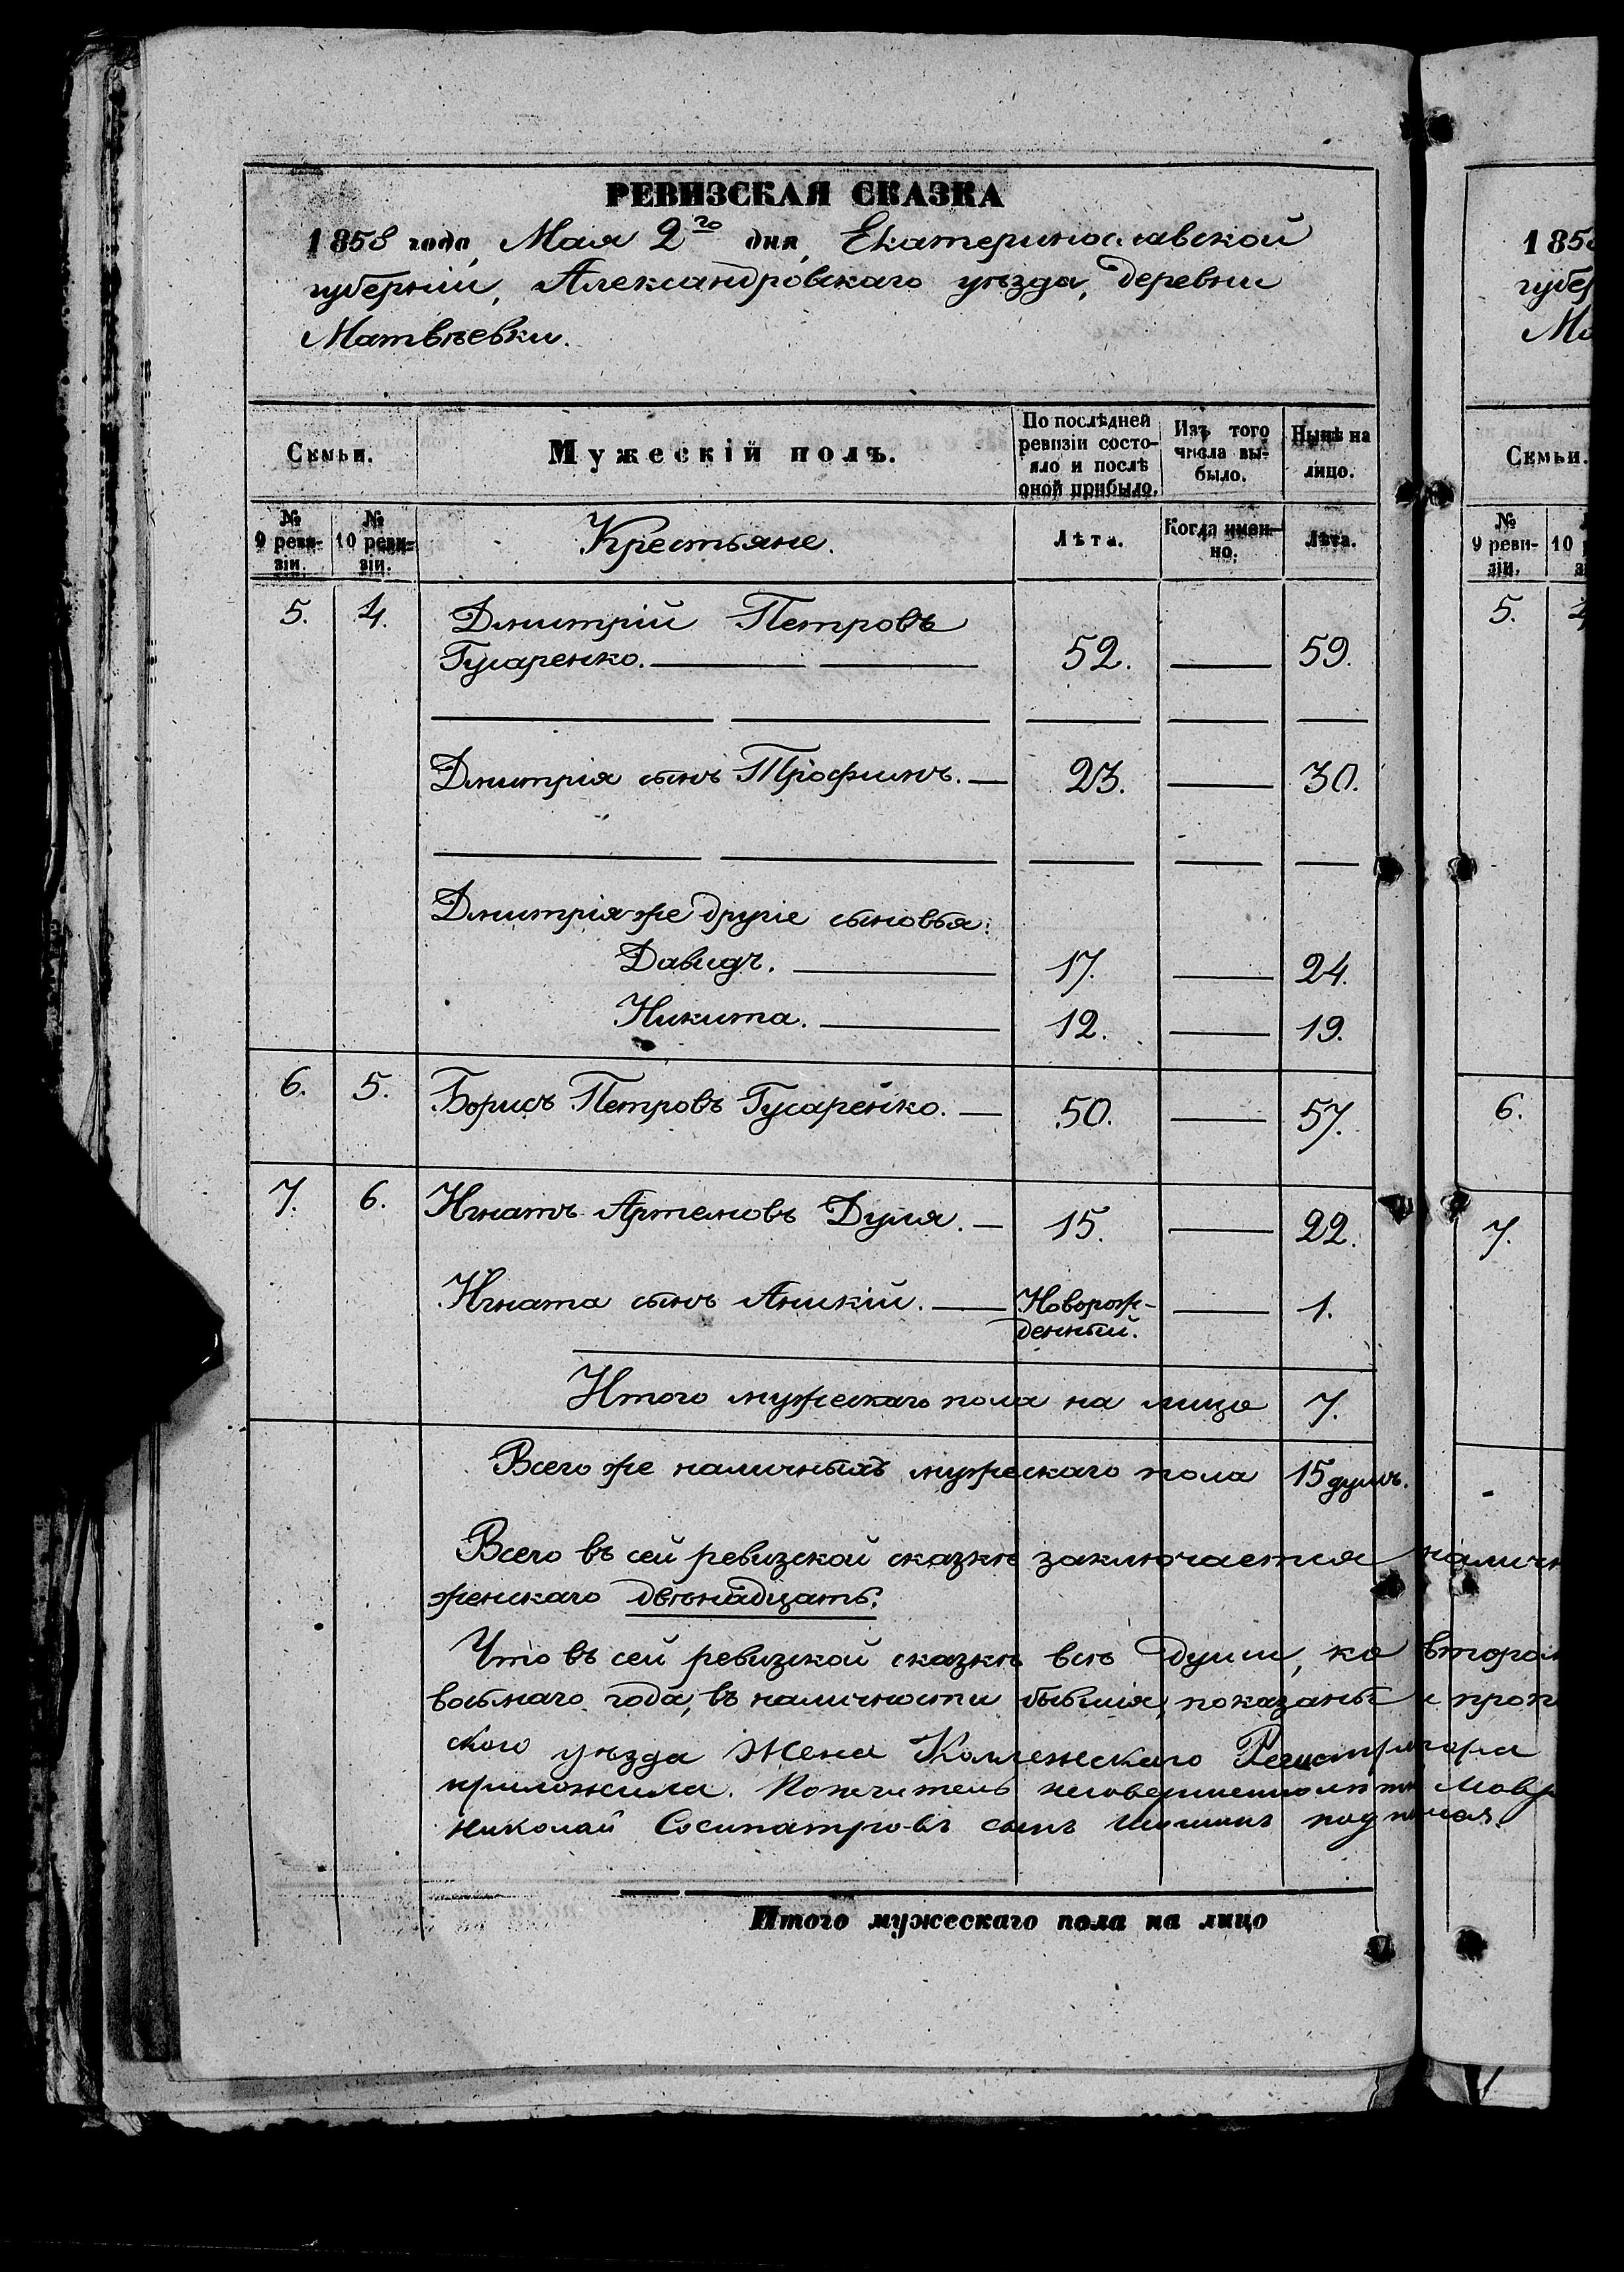 РЕВИЗСКАЯ СКАЗКА
1858 года, Мая 2го дня, Екатеринославской
губерніи, Александровскаго уѣзда, деревни
Матвѣевки.
Семьи.
Мужескій полъ.
По послѣдней
ревизіи состо-
яло и послѣ
оной прибыло.
Изъ того
числа вы-
было.
Нынѣ на
лицо.
№
9 реви-
зіи.
№
10 реви-
зіи.
Крестьяне.
Лѣта.
Когда имен-
но.
Лѣта.
5. 4. Дмитрій Петровъ
Гусаренко. 52. 59.
Дмитрія сынъ Трофимъ. 23. 30.
Дмитрія же другіе сыновья:
Давидъ. 17. 24.
Никита. 12. 19.
6. 5. Борисъ Петровъ Гусаренко. 50. 57.
7. 6. Игнатъ Артемовъ Дуля. 15. 22.
Игната сынъ Аникій. Новорож-
денный. 1.
Итого мужескаго пола на лицо 7.
Всего же наличныхъ мужескаго пола 15 душъ.
Всего въ сей ревизской сказкѣ заключается налич
женскаго двѣнадцать.
Что въ сей ревизской сказкѣ всѣ души, ко втором
восьмаго года, въ наличности бывшія, показаны и проп
ского уѣзда Жена Коллежскаго Регистратора
приложила. Попечитель несовершеннолѣтн
Николай Сосипатровъ сынъ
Итого мужескаго пола на лицо
185
губер
Ма
Семьи.
№
9 реви-
зіи.
10
5.
6.
7.